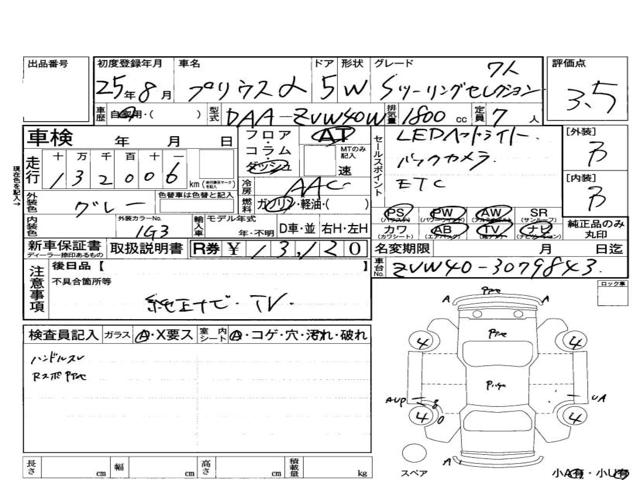 出品番号
初度登録年月 車名 ドア 形状 グレード 評価点
25年8月 プリウスα 5 W Sツーリングセレクション 7人 3.5
車歴 自家用・( ) 型式 DAA-ZVW40W 排気量 1800 cc 定員 7 人
車検 年 月 日
フロア・コラム・ダッシュ AT MTのみ記入 速
セールスポイント
LEDヘッドライト.
バックカメラ
ETC
[外装] B
[内装] B
現在色を記入→
走行 十 万 千 百 十 一
132006 km
冷房 AAC
外装色 グレー 色替車は色替と記入
燃料 ガソリン・軽油・( )
PS PW AW SR
(パワステ) (パワーウィンド) (アルミホイール) (サンルーフ)
カワ AB TV ナビ
(カワシート) (エアバック) (テレビ) (ナビゲーション)
純正品のみ丸印
内装色 外装カラーNo. 1G3 輸入車 モデル年式 年・不明 D車・並 右H・左H
新車保証書 ディーラー捺印あるもの 取扱説明書 R券 ¥ 13,120
名変期限 月 日迄
車台No. ZVW40-3079843.
注意事項
後日品【 】
不具合箇所等
純正ナビ・TV.
ロック車
検査員記入 ガラス A・X要ス 室内シート A・コゲ・穴・汚れ・破れ
ハンドルスレ
A
4 4
AUP
UA
4 4
A
スペア
小A有・小U有
長さ cm 幅 cm 高さ cm 積載量 kg